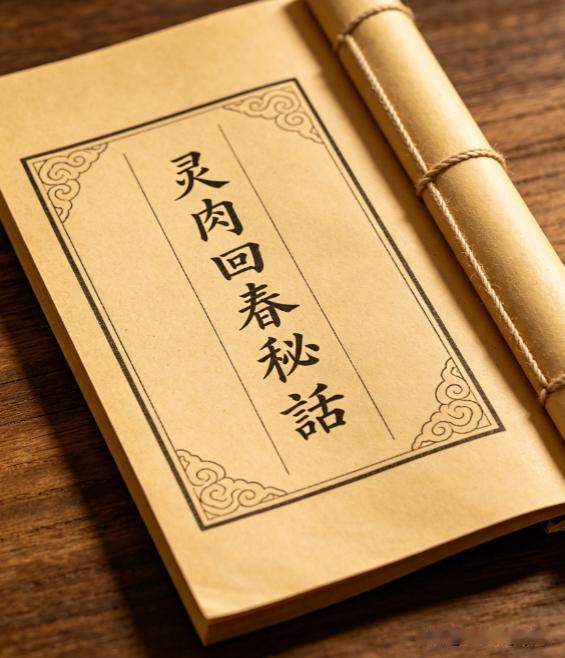 灵肉回春秘話